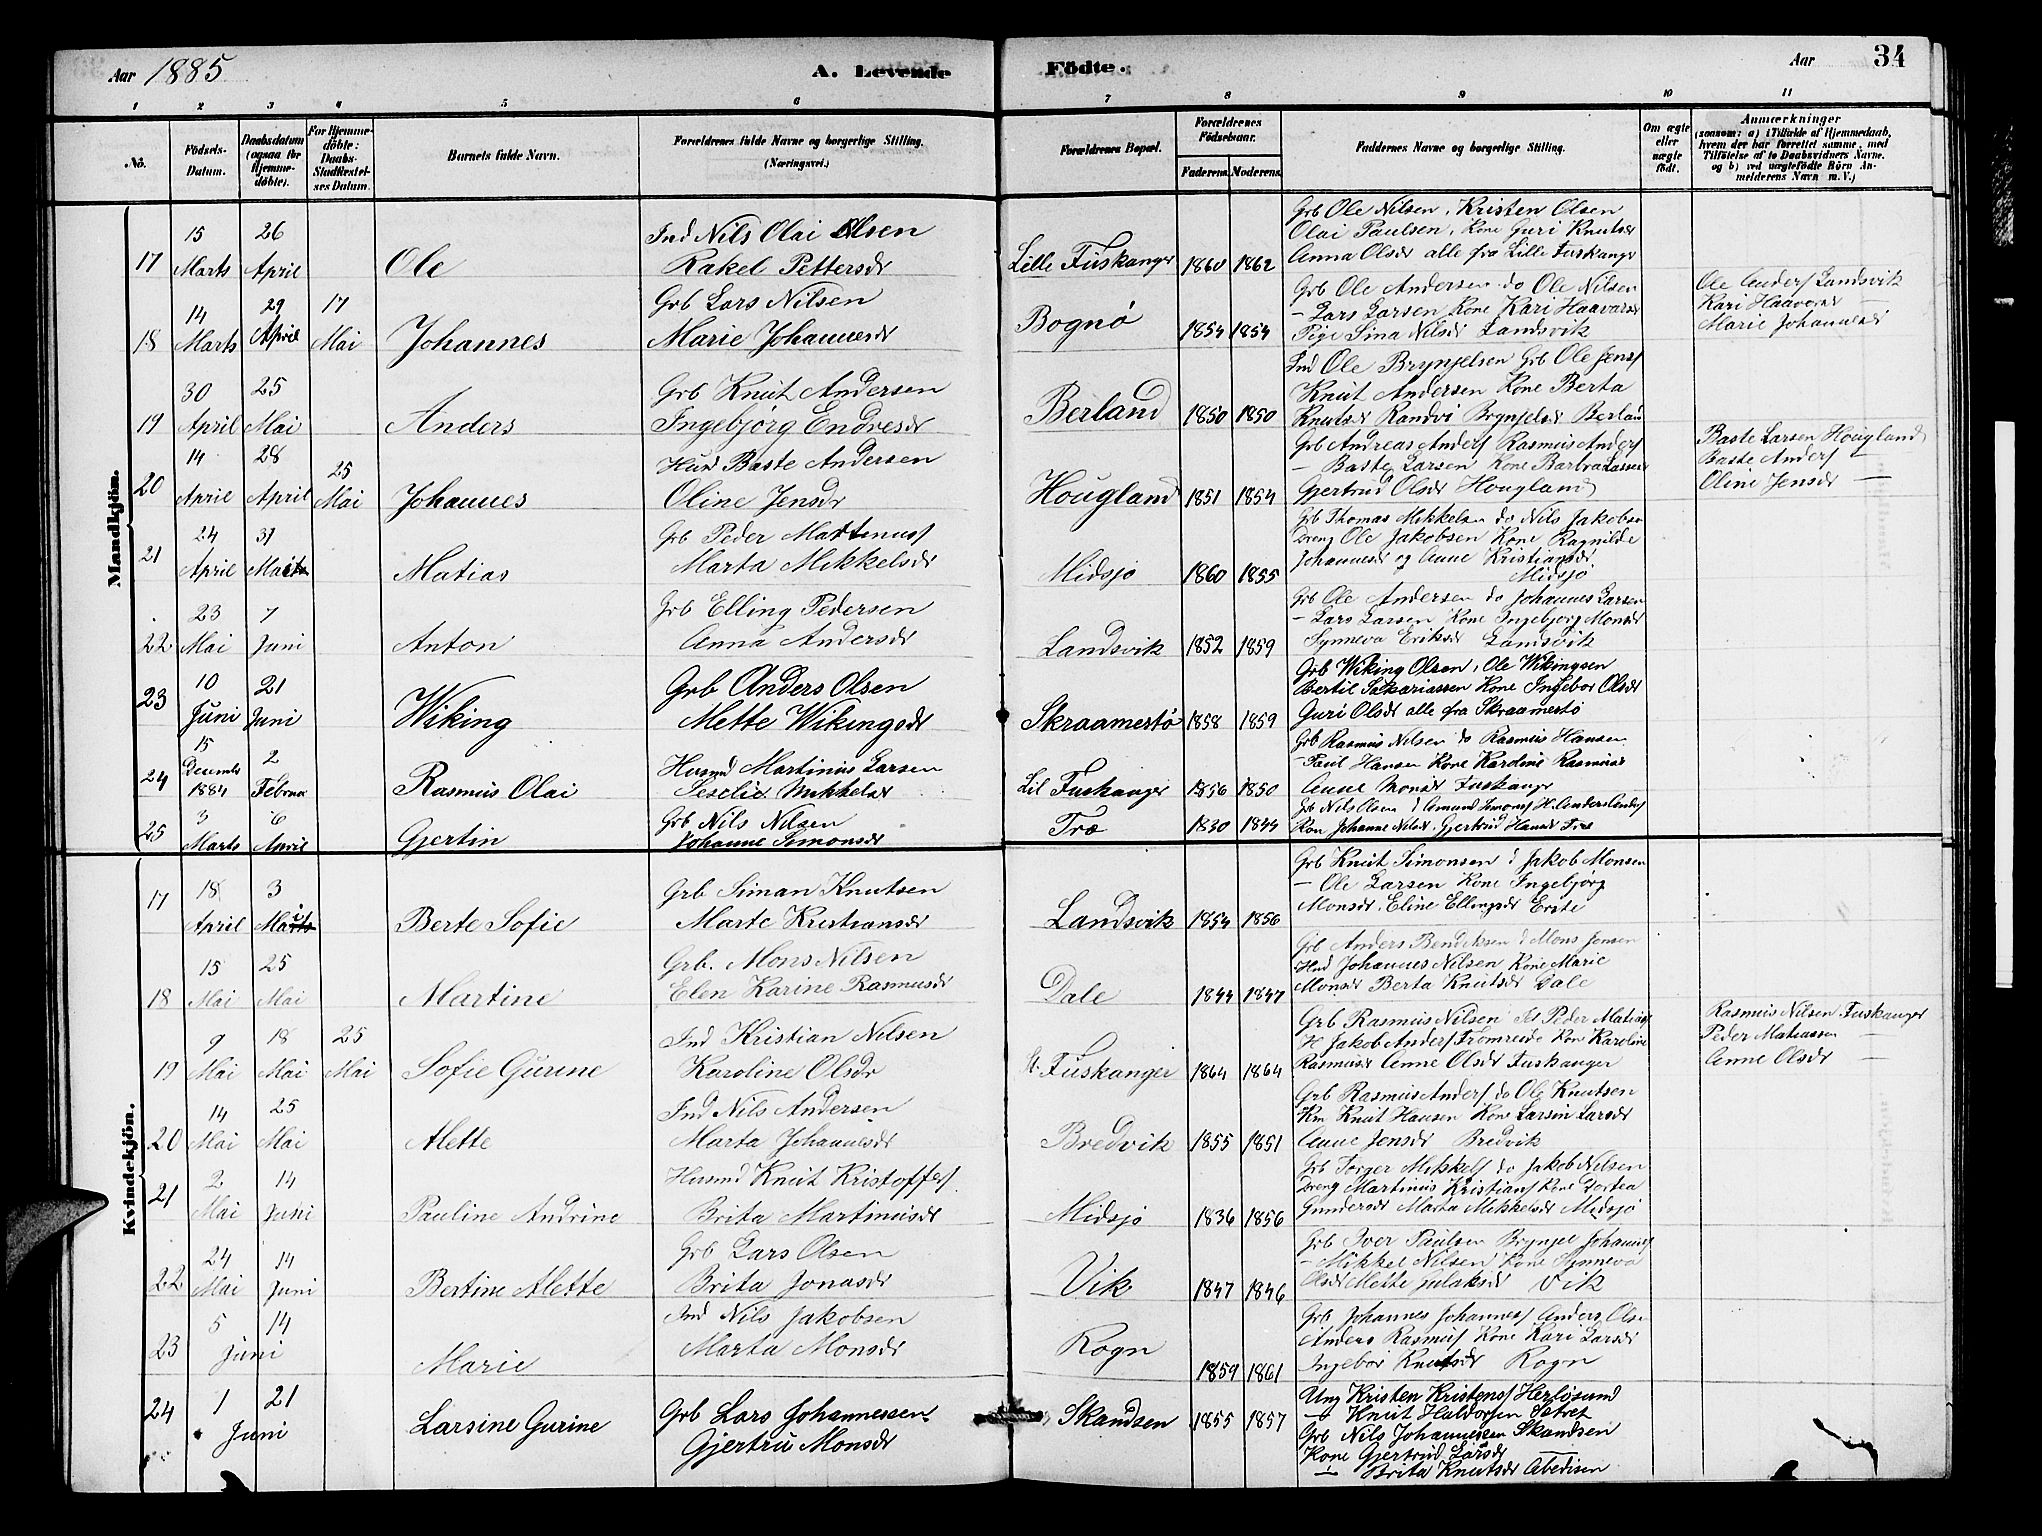 Aar 1885 A. Levende Födte. Aar 34
1 2 3 4 5 6 7 8 9 10 11
No. Födsels-Datum. Daabsdatum (ogsaa for Hjemme-döbte). For Hjemme-döbte: Daabs-Stadfæstel-ses Datum. Barnets fulde Navn. Forældrenes fulde Navne og borgerlige Stilling. (Næringsvei.) Forældrenes Bopæl. Forældrenes Födselsaar. Faderens. Moderens. Faddernes Navne og borgerlige Stilling. Om ægte eller uægte født. Anmærkninger (saasom: a) i Tilfælde af Hjemmedaab, hvem der har forrettet samme, med Tilföielse af to Daabsvidners Navne. og b) ved uægtefödte Börn An-melderens Navn m. V.)
Mandkjön.
17 15 Marts 26 April Ole Ind Nils Olai Olsen
Rakel Pettersdr Lille Fuskanger 1860 1862
Grb Ole Nilsen, Kristen Olsen
Olai Paulsen, Kone Guri Knutsdr
Anna Olsdr alle fra Lille Fuskangr
18 14 Marts 29 April 17 Mai Johannes Grb Lars Nilsen
Marie Johannesdr Bognö 1854 1854
Grb Ole Andersen do Ole Nilsen
- Lars Larsen Kone Kari Haavarsdr
Pige Sina Nilsdr Landsvik
Ole Anders Landsvik
Kari Haavarsdr —
Marie Johannesdr
19 30 April 25 Mai Anders Grb Knut Andersen
Ingebjörg Endresdr Berland 1850 1850
Ind Ole Brynjelsen Grb Ole Jens
Knut Andersen Kone Berta
Knutsdr Randvi Brynjelsdr Berland
20 14 April 28 April 25 Mai Johannes Husd Baste Andersen
Oline Jensdr Hougland 1851 1854
Grb Andreas Anders Rasmus Anders
- Baste Larsen Kone Barbra Lassesdr
Gjertrud Olsdr Hougland
Baste Larsen Hougland
Baste Anders —
Oline Jensdr —
21 24 April 31 Mai Matias Grb Peder Martenus
Marta Mikkelsdr Midsjö 1860 1855
Grb Thomas Mikkelsen do Nils Jakobsen
Dreng Ole Jakobsen Kone Ragnilde
Johannesdr og Anne Kristiansdr
Midsjö
22 23 Mai 7 Juni Anton Grb Elling Pedersen
Anna Andersdr Landsvik 1852 1859
Grb Ole Andersen do Johannes Larsen
- Lars Larsen Kone Ingebjorg Monsdr
Synneva Eriksdr Landsvik
23 10 Juni 21 Juni Wiking Grb Anders Olsen
Mette Wikingsdr Skraamestö 1858 1859
Grb Wiking Olsen, Ole Wikingsen
Bertil Sakariassen Kone Ingebor Olsdr
Guri Olsdr alle fra Skraamestö
24 15 Decembr 1884 2 Februar Rasmus Olai Husmd Martinus Larsen
Seselie Mikkelsdr Lil Fuskanger 1856 1850
Grb Rasmus Nilsen do Rasmus Hansen
- Paul Hansen Kone Karoline Rasmusdr
Anne Monsdr Fuskanger
25 3 Marts 6 April Gjertin Grb Nils Nilsen
Johanne Simonsdr Træ 1830 1844
Grb Nils Olsen d Amund Simons H. Anders Anders
Kon Johanne Nilsdr. Gjertrud Hansdr Træ
Kvindekjön.
17 18 April 3 Mai Berte Sofie Grb Siman Knutsen
Marte Kristiansdr Landsvik 1854 1856
Grb Knut Simonsen d Jakob Monsen
- Ole Larsen Kone Ingebjörg
Monsdr. Eline Ellingsdr Erste
18 15 Mai 25 Mai Martine Grb. Mons Nilsen
Elen Karine Rasmusdr Dale 1844 1847
Grb Anders Bendiksen d Mons Jensen
Hmd Johannes Nilsen Kone Marie
Monsdr Berta Knutsdr Dale
19 9 Mai 18 Mai 25 Mai Sofie Gurine Ind Kristian Nilsen
Karoline Olsdr St. Fuskanger 1864 1864
Grb Rasmus Nilsen Peder Matias
H Jakob Anders Tromreide Kon Karoline
Rasmusdr Anne Olsdr Fuskanger
Rasmus Nilsen Fuskanger
Peder Matiassen —
Anne Olsdr —
20 14 Mai 25 Mai Alette Ind Nils Andersen
Marta Johannesdr Bredvik 1855 1851
Grb Rasmus Anders do Ole Knutsen
Hm Knut Hansen Kone Larsin Larsdr
Anne Jensdr Bredvik
21 2 Mai 14 Juni Pauline Andrine Husmd Knut Kristoffers
Brita Martinusdr Midsjo 1836 1856
Grb Torger Mikkels do Jakob Nilsen
Dreng Martinus Kristians Kone Dortea
Gundersdr Marta Mikkelsdr Midsjö
22 24 Mai 14 Juni Bertine Alette Grb Lars Olsen
Brita Jonasdr Vik 1847 1846
Grb Iver Paulsen Brynjel Johannes
- Mikkel Nilsen Kone Synneva
Olsdr Mette Vik
23 5 14 Juni Marie Ind Nils Jakobsen
Marta Monsdr Rogn 1859 1861
Grb Johannes Johannes Anders Olse
Anders Rasmus Kone Kari Larsdr
Ingebor Knutsdr Rogn
24 1 21 Juni Larsine Gurine Grb Lars Johannessen
Gjertru Monsdr Skandsen 1855 1857
Ung Kristen Kristens Herlösund
- Knut Haldorsen Sætret
Grb Nils Johannessen Skandsen
Kone Gjertrud Larsdr
- Brita Knutsdr Abedisen